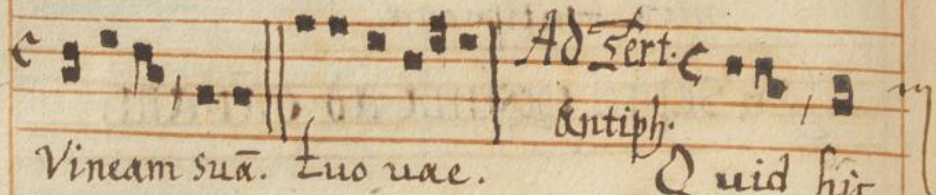 Ad Sext.
antiph.
Vineam suā. tuo uae. Quid hic